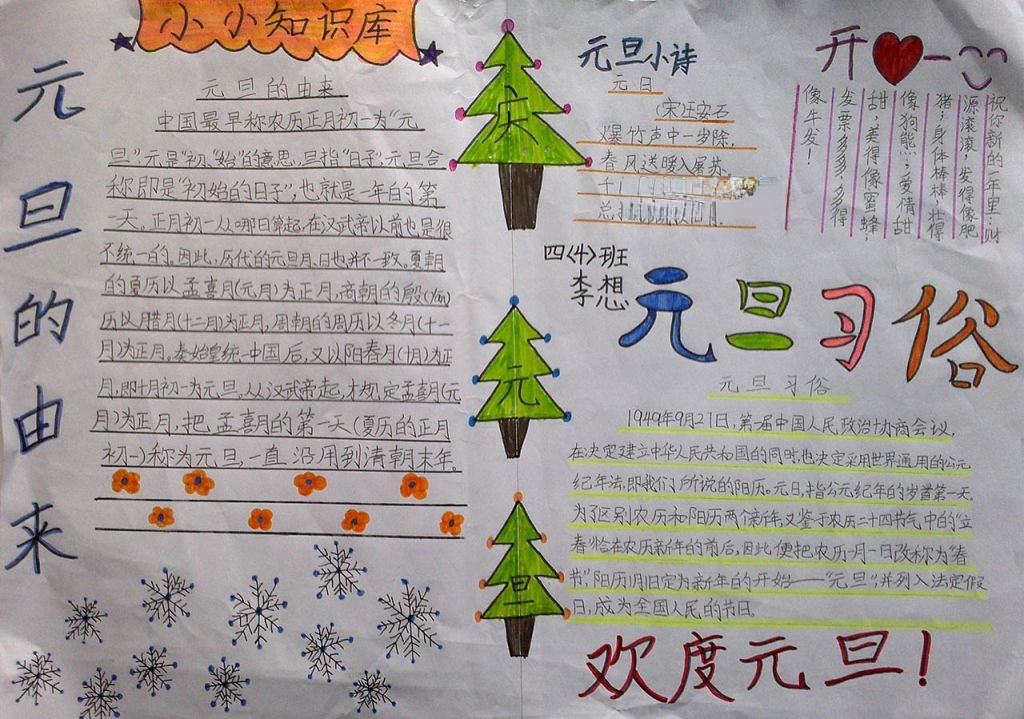 小小知识库
元旦的由来
元旦的由来
中国最早称农历正月初一为“元
旦”元是“初、“始”的意思,旦指“日子”,元旦合
称即是“初始的日子”,也就是一年的第
一天。正月初一从哪日算起,在汉武帝以前也是很
不统一的。因此,历代的元旦月、日也并不一致。夏朝
的夏历以孟喜月(元月)为正月,商朝的殷(yīn)
历以腊月(十二月)为正月,周朝的周历以冬月(十一
月)为正月。秦始皇统一中国后,又以阳春月(十月)为正
月,即十月初一为元旦。从汉武帝起,才规定孟喜月(元
月)为正月,把孟喜月的第一天(夏历的正月
初一)称为元旦,一直沿用到清朝末年。
庆
元
旦
元旦小诗
元日
(宋)王安石
爆竹声中一岁除,
春风送暖入屠苏,
千
总
开心一
祝你新的一年里:财
源滚滚,发得像肥
猪;身体棒棒,壮得
像狗熊;爱情甜
甜,美得像蜜蜂;
发票多多,多得
像牛发!
四〈4〉班
李想
元旦习俗
元旦习俗
1949年9月27日,第一届中国人民政治协商会议,
在决定建立中华人民共和国的同时,也决定采用世界通用的公元
纪年法,即我们所说的阳历。元旦,指公元纪年的岁首第一天。
为了区别农历和阳历两个新年,又鉴于农历二十四节气中的“立
春”恰在农历新年的前后,因此便把农历一月一日改称为“春
节”,阳历1月1日定为新年的开始——“元旦”,并列入法定假
日,成为全国人民的节日。
欢度元旦!